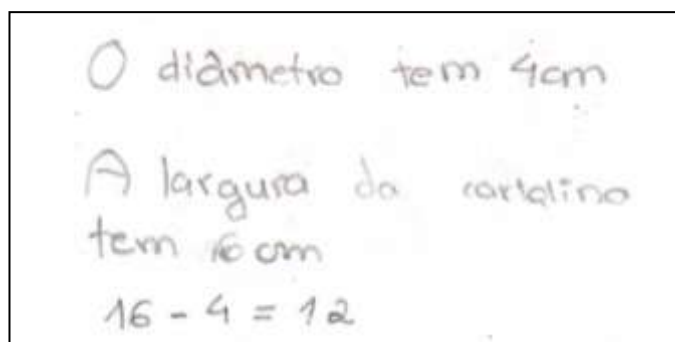 O diâmetro tem 4cm
A largura da cartolina
tem 16 cm
16 - 4 = 12